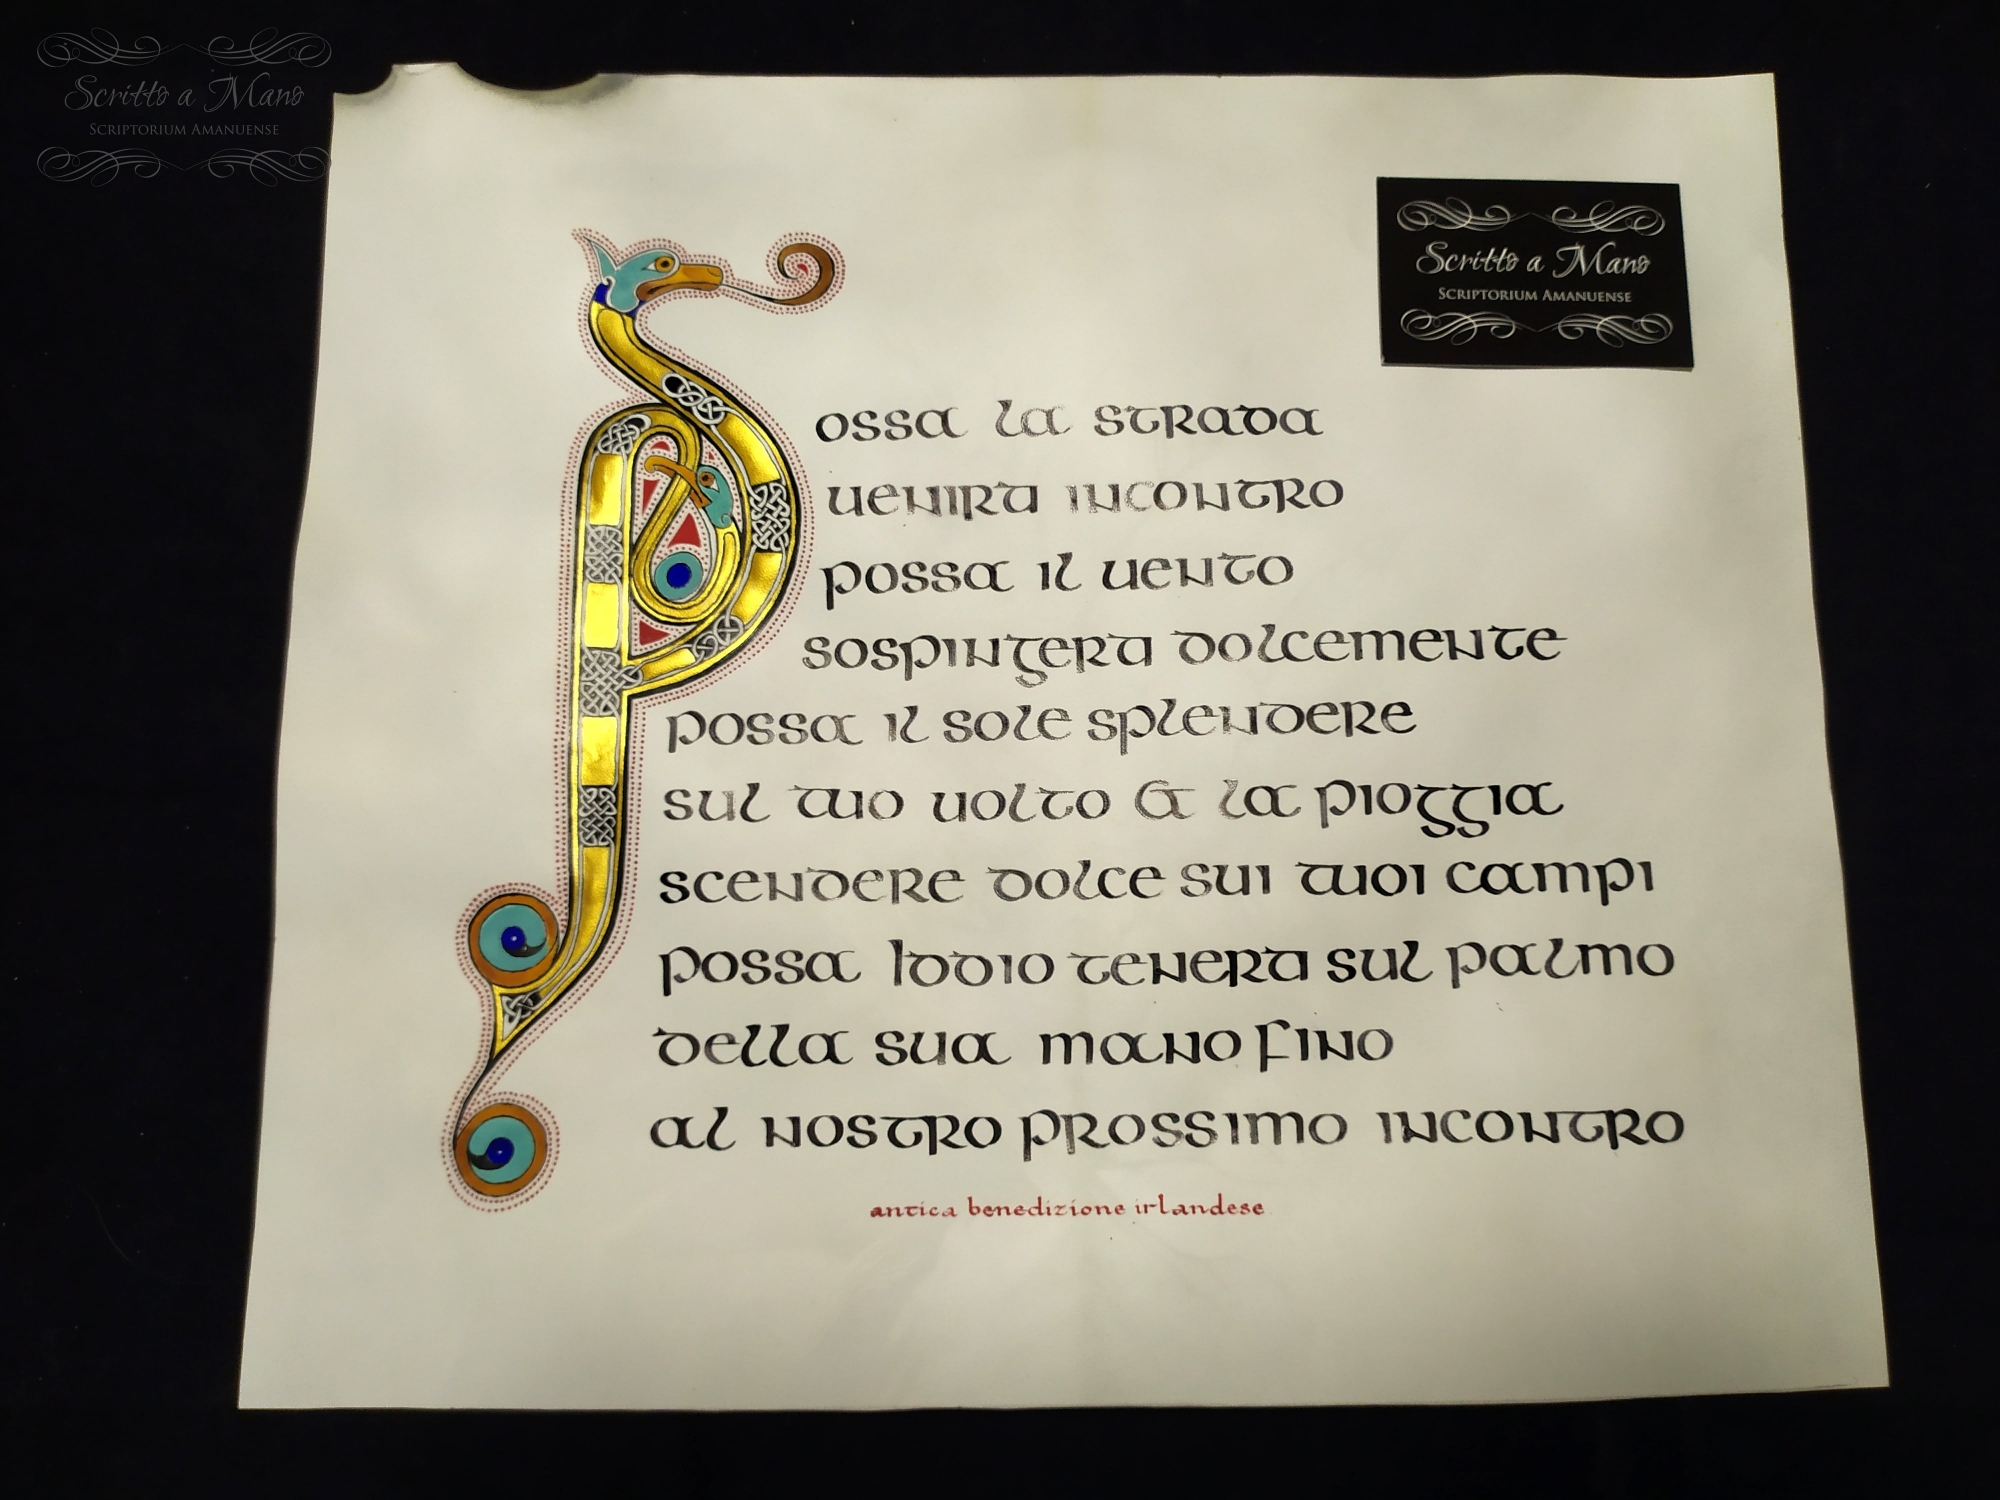 Scritto a Mano
Scriptorium Amanuense
Scritto a Mano
Scriptorium Amanuense
Possa la strada
venirti incontro
possa il vento
sospingerti dolcemente
possa il sole splendere
sul tuo volto & la pioggia
scendere dolce sui tuoi campi
possa Iddio tenerti sul palmo
della sua mano fino
al nostro prossimo incontro
antica benedizione irlandese